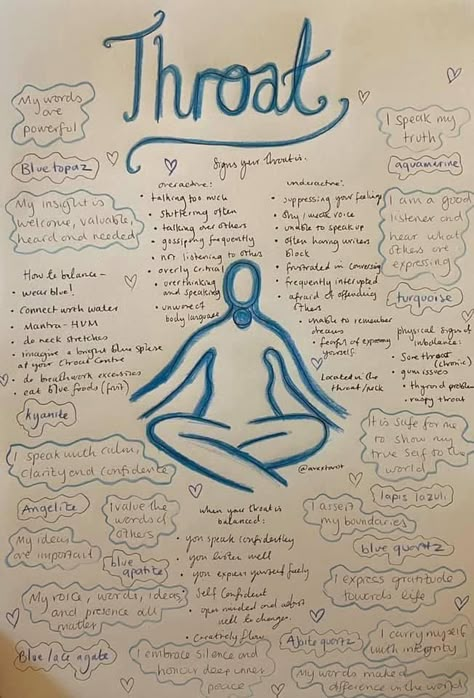 Throat
My words
are
powerful
I speak my
truth
Blue topaz
aquamarine
Signs your throat is:
My insight is
welcome, valuable,
heard and needed
I am a good
listener and
hear what
others are
expressing
overactive:
• talking too much
• stuttering often
• talking over others
• gossiping frequently
• not listening to others
• overly critical
• overthinking
and speaking
• unaware of
body language
underactive:
• suppressing your feelings
• shy / meek voice
• unable to speak up
• often having writers
block
• frustrated in conversing
• frequently interrupted
• afraid of offending
others
• unable to remember
dreams
• fearful of expressing
yourself
turquoise
How to balance -
• wear blue!
• connect with water
• Mantra - HUM
• do neck stretches
• imagine a bright blue sphere
at your throat centre
• do breathwork excersises
• eat blue foods (fruit)
physical signs of
imbalance:
• Sore throat
(chronic)
• gum issues
• thyroid problems
• raspy throat
Located in the
throat/neck
kyanite
It is safe for me
to show my
true self to the
world
I speak with calm,
clarity and confidence
@avestarot
lapis lazuli
Angelite
I value the
words of
others
I assert
my boundaries
when your throat is
balanced:
• you speak confidently
• you listen well
• you express yourself freely
• Self confident
• open minded and adapts
well to change
• Creatively flow
My ideas
are important
blue quartz
blue
apatite
My voice, words, ideas
and presence all
matter
I express gratitude
towards life
Blue lace agate
I embrace silence and
honour deep inner
peace
Ajoite quartz
I carry myself
with integrity
My words make a
difference in the world